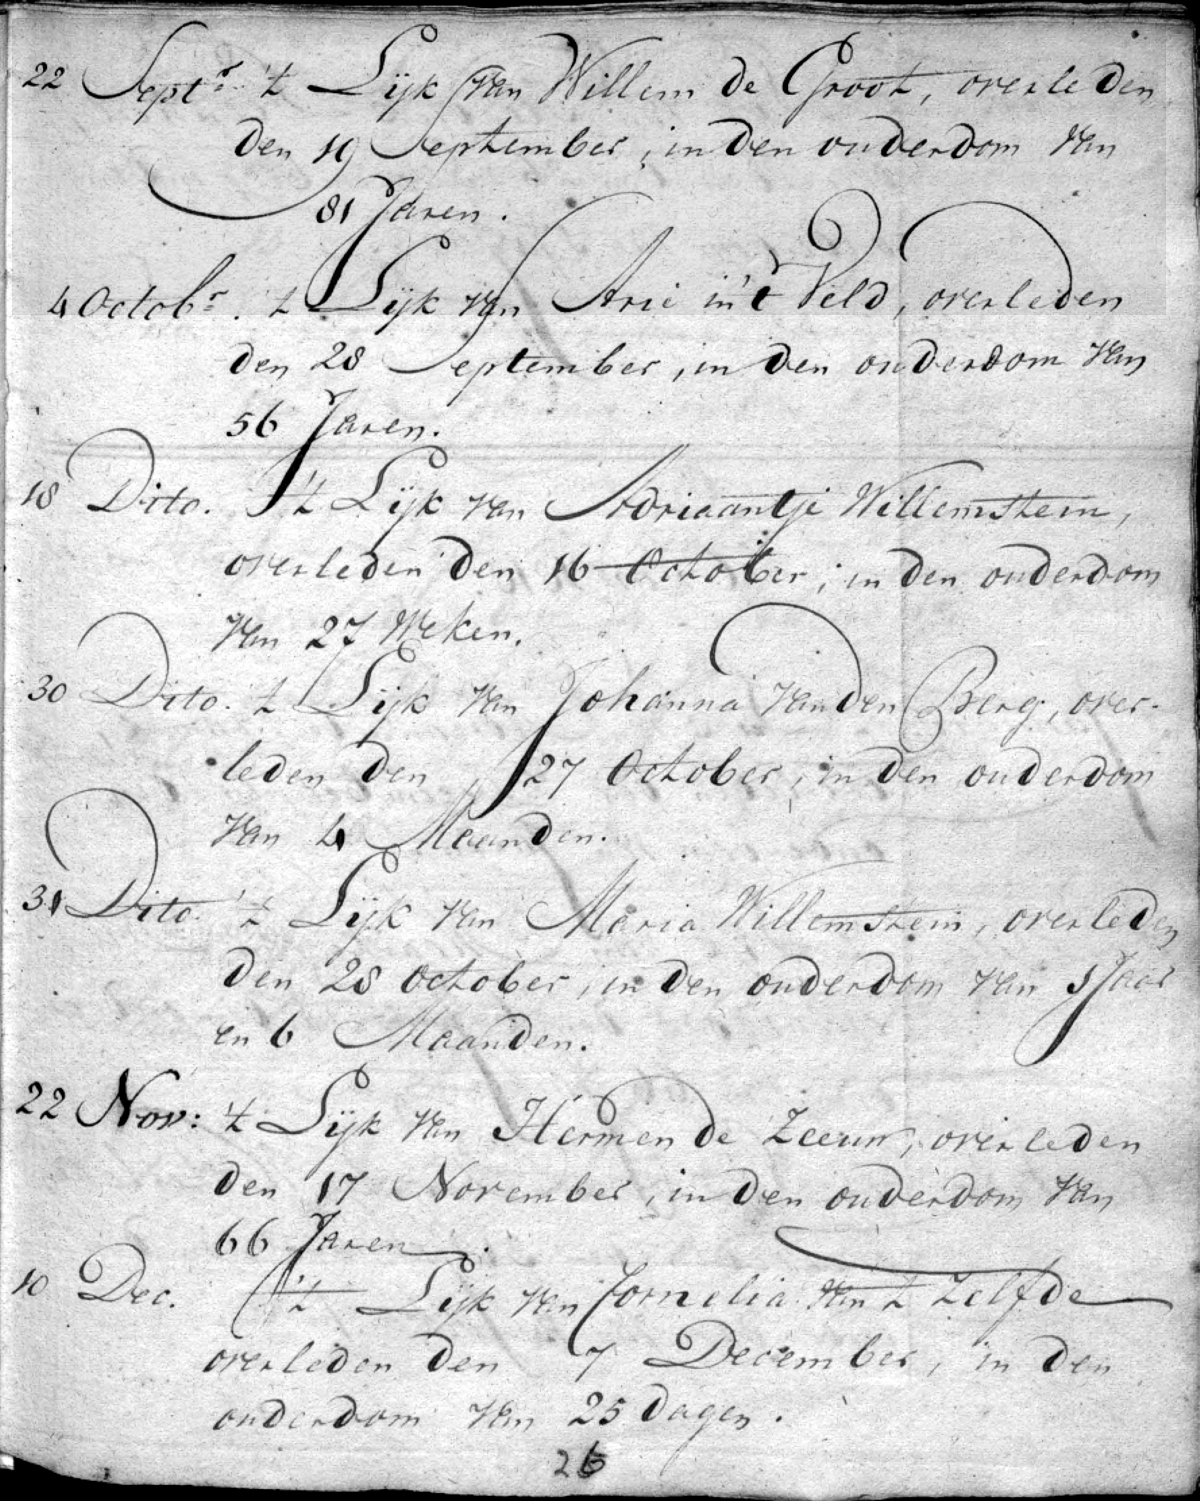 22 Septr. 't Lijk van Willem de Groot, overleden
den 19 September, in den ouderdom van
81 Jaren.
4 Octobr. 't Lijk van Arie in 't Veld, overleden
den 28 September, in den ouderdom van
56 Jaren.
18 Dito. 't Lijk van Adriaantje Willemstein,
overleden den 16 October, in den ouderdom
van 27 Weken.
30 Dito. 't Lijk van Johanna van den Berg, over-
leden den 27 October, in den ouderdom
van 4 Maanden.
31 Dito 't Lijk van Maria Willemstein, overleden
den 28 October, in den ouderdom van 1 Jaar
en 6 Maanden.
22 Nov: 't Lijk van Hermen de Zeeuw, overleden
den 17 November, in den ouderdom van
66 Jaren.
10 Dec. 't Lijk van Cornelia van 't Zelfde
overleden den 7 December, in den
ouderdom van 25 dagen.
26